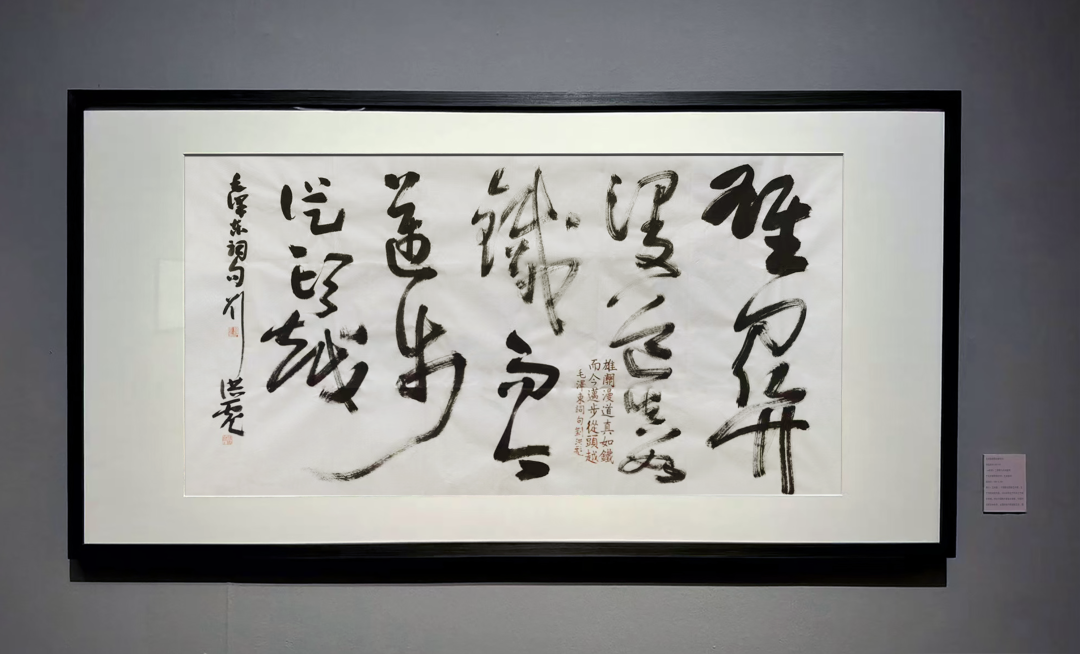 雄關
漫道真如
鐵而今
邁步
從頭越
毛澤東詞句劉洪彪
雄關漫道真如鐵
而今邁步從頭越
毛澤東詞句劉洪彪